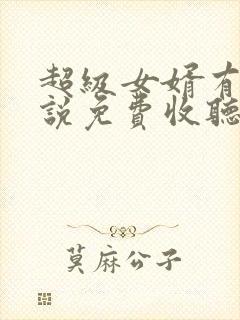 超級女婿有
說免費收聽
莫麻公子